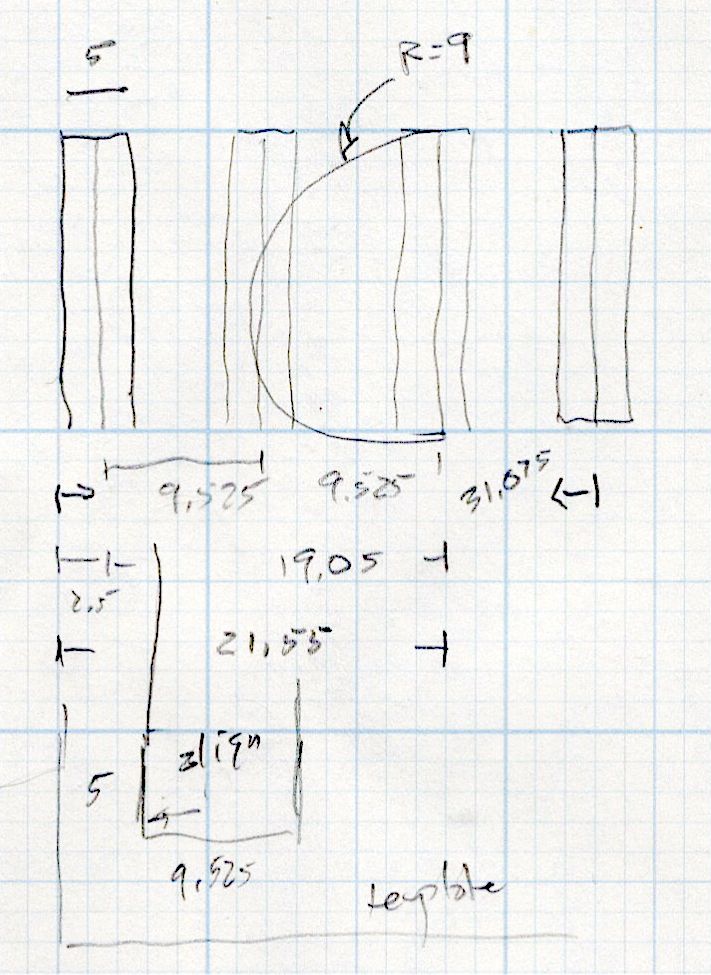 5
R=9
9.525 9.525 31.075
19.05
2.5
21.55
align
5
9.525
template